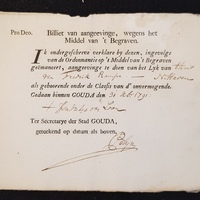 Pro Deo. Billiet van aangeevinge, wegens het
Middel van 't Begraven.
Ik ondergeschreven verklare by dezen, ingevolge
van de Ordonnantie op 't Middel van 't Begraven
geëmaneert, aangeevinge te doen van het Lyk van
als gehoorende onder de Classis van d' onvermogende.
Gedaan binnen GOUDA den 31 1791
Ter Secretarye der Stad GOUDA,
geteekend op datum als boven,